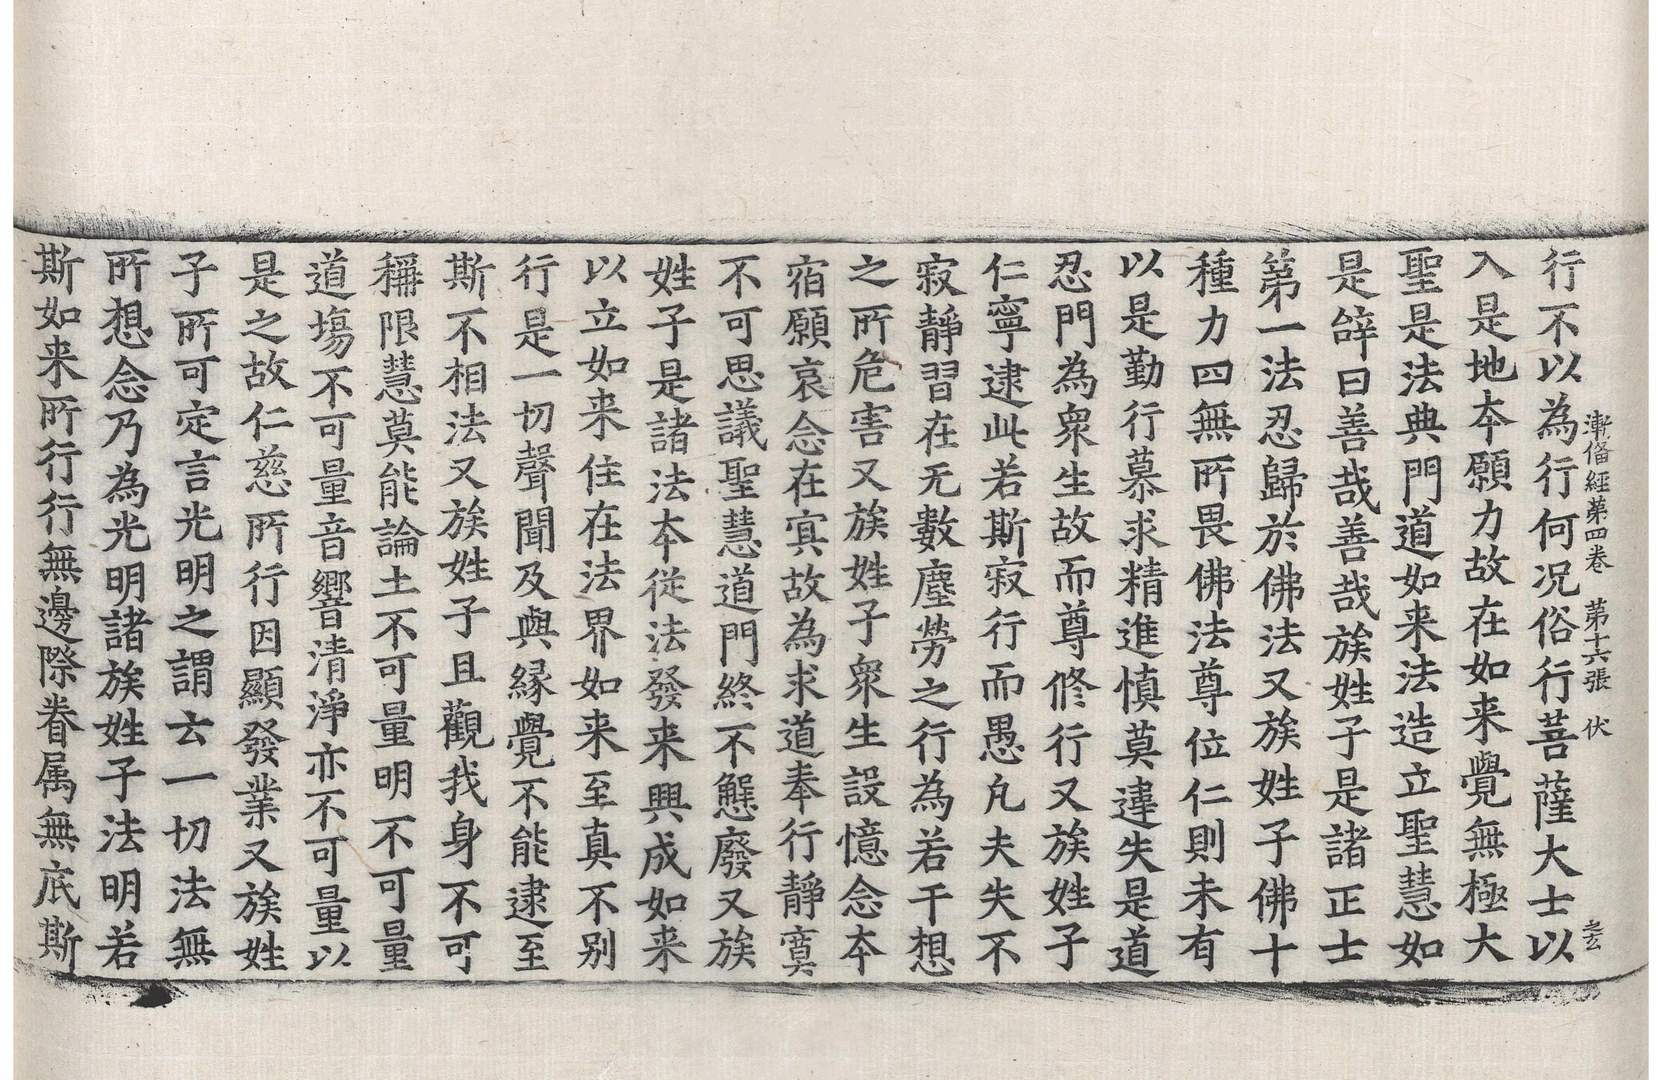 行不以為行何況俗行菩薩大士以
漸備經第四卷　第十六張　伏
入是地本願力故在如来覺無極大
聖是法典門道如来法造立聖慧如
是辞曰善哉善哉族姓子是諸正士
第一法忍歸於佛法又族姓子佛十
種力四無所畏佛法尊位仁則未有
以是勤行慕求精進慎莫違失是道
忍門為衆生故而尊修行又族姓子
仁寧逮此若斯寂行而愚凢夫失不
寂靜習在无數塵勞之行為若干想
之所危害又族姓子衆生設憶念本
宿願哀念在㝠故為求道奉行靜寞
不可思議聖慧道門終不懈廢又族
姓子是諸法本從法發来興成如来
以立如来住在法界如来至真不别
行是一切聲聞及與縁覺不能逮至
斯不相法又族姓子且觀我身不可
稱限慧莫能論土不可量明不可量
道塲不可量音響清淨亦不可量以
是之故仁慈所行因顯發業又族姓
子所可定言光明之謂云一切法無
所想念乃為光明諸族姓子法明若
斯如来所行行無邊際眷属無底斯